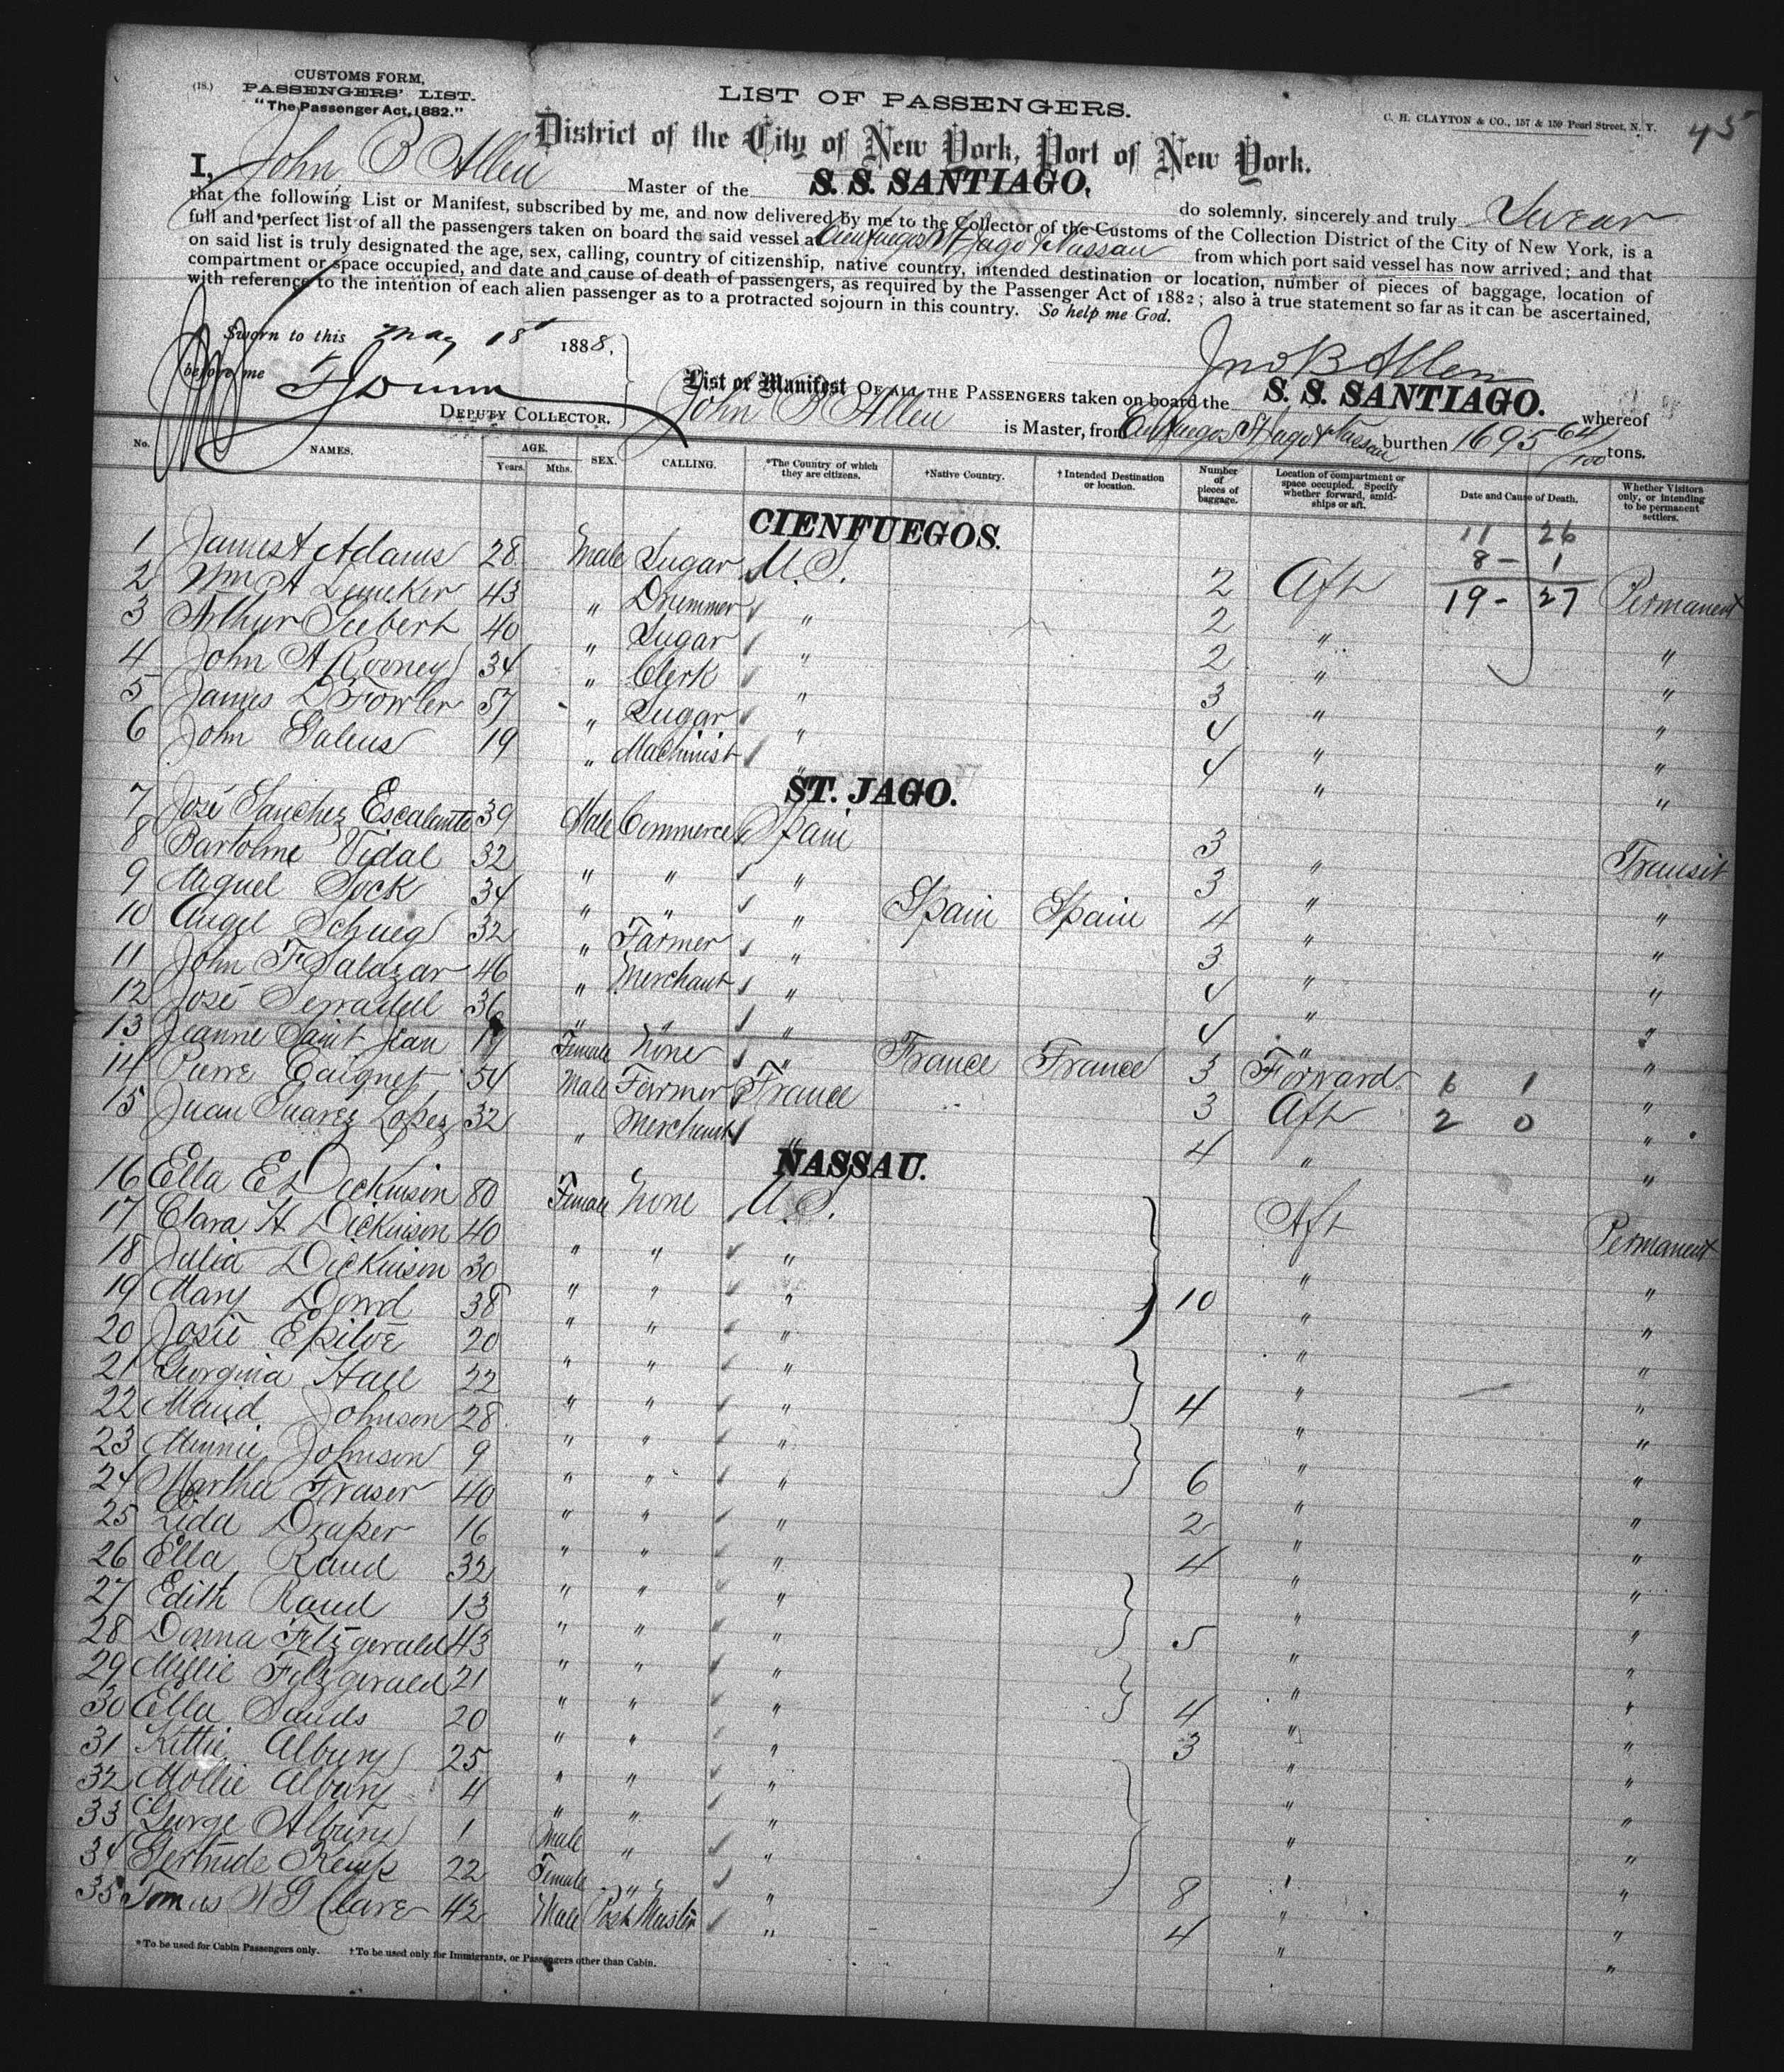 (18.)
CUSTOMS FORM,
PASSENGERS' LIST.
"The Passenger Act, 1882."
LIST OF PASSENGERS.
C. H. CLAYTON & CO., 157 & 159 Pearl Street, N. Y.
45
District of the City of New York, Port of New York.
I, John B Allen Master of the S. S. SANTIAGO, do solemnly, sincerely and truly Swear
that the following List or Manifest, subscribed by me, and now delivered by me to the Collector of the Customs of the Collection District of the City of New York, is a
full and perfect list of all the passengers taken on board the said vessel at Cienfuegos St Jago & Nassau from which port said vessel has now arrived; and that
on said list is truly designated the age, sex, calling, country of citizenship, native country, intended destination or location, number of pieces of baggage, location of
compartment or space occupied, and date and cause of death of passengers, as required by the Passenger Act of 1882; also a true statement so far as it can be ascertained,
with reference to the intention of each alien passenger as to a protracted sojourn in this country. So help me God.
Sworn to this May 18 1888,
before me
Jno B Allen
DEPUTY COLLECTOR.
List or Manifest OF ALL THE PASSENGERS taken on board the S. S. SANTIAGO. whereof
John B Allen is Master, from Cienfuegos St Jago & Nassau burthen 1695 64/100 tons.
No. NAMES. AGE. Years. Mths. SEX. CALLING. *The Country of which they are citizens. †Native Country. †Intended Destination or location. Number of pieces of baggage. Location of compartment or space occupied. Specify whether forward, amidships or aft. Date and Cause of Death. Whether Visitors only, or intending to be permanent settlers.
CIENFUEGOS.
11 26
8 - 1
19 - 27
1 James A Adams 28 Male Sugar U.S. 2 Aft Permanent
2 Wm A 43 " Drummer " 2 " "
3 Arthur Seebert 40 " Sugar " 2 " "
4 John A Rooney 34 " Clerk " 3 " "
5 James D Fowler 57 " Sugar " 4 " "
6 John 19 " Machinist " 4 " "
ST. JAGO.
7 José Sanchez Escalante 39 Male Commerce Spain 3 " Transit
8 Bartolme Vidal 32 " " " 3 " "
9 Miguel Sock 34 " " " Spain Spain 4 " "
10 Angel Schueg 32 " Farmer " 3 " "
11 John F Salazar 46 " Merchant " 4 " "
12 José Serradell 36 " " " 4 " "
13 Jeanne Saint Jean 19 Female None " France France 3 Forward 6 1 "
14 Pierre Caignet 54 Male Farmer France 3 Aft 2 0 "
15 Juan Suarez Lopez 32 " Merchant " 4 " "
NASSAU.
16 Ella E Dickinson 80 Female None U.S. Aft Permanent
17 Clara H Dickinson 40 " " " " "
18 Julia Dickinson 30 " " " 10 " "
19 Mary Dowd 38 " " " " "
20 Josie 20 " " " " "
21 Georgina Hall 22 " " " 4 " "
22 Maud Johnson 28 " " " " "
23 Minnie Johnson 9 " " " 6 " "
24 Martha Fraser 40 " " " 2 " "
25 Lida Draper 16 " " " 4 " "
26 Ella Rand 32 " " " " "
27 Edith Rand 13 " " " 5 " "
28 Donna Fitzgerald 43 " " " " "
29 Millie Fitzgerald 21 " " " 4 " "
30 Ella Sands 20 " " " 3 " "
31 Kittie Albury 25 " " " " "
32 Mollie Albury 4 " " " " "
33 George Albury 1 Male " " " "
34 Gertrude Kemp 22 Female " " 8 " "
35 Tomas W G Clare 42 Male Post Master " 4 " "
*To be used for Cabin Passengers only. †To be used only for Immigrants, or Passengers other than Cabin.